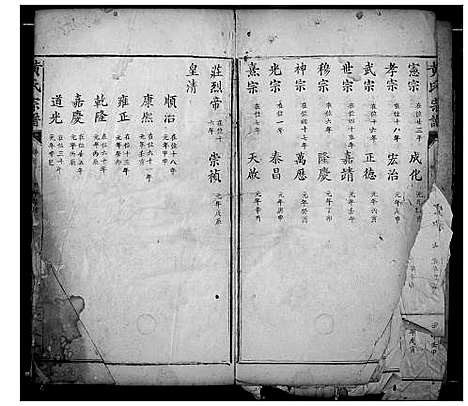 黃氏宗譜
憲宗 在位二十三年 成化
孝宗 在位十八年 宏治
武宗 在位十六年 正德 元年丙寅
世宗 在位四十五年 嘉靖 元年壬午
穆宗 在位六年 隆慶 元年丁卯
神宗 在位四十七年 萬歷 元年癸酉
光宗 在位一年 泰昌 元年庚申
熹宗 在位七年 天啟 元年辛酉
莊烈帝 在位十六年 崇禎 元年戊辰
皇清
順治 在位十八年 元年甲申
康熙 在位六十一年 元年壬寅
雍正 在位十三年 元年癸卯
乾隆 在位六十年 元年丙辰
嘉慶 在位二十五年 元年丙辰
道光 在位三十年 元年辛巳
黃氏宗譜